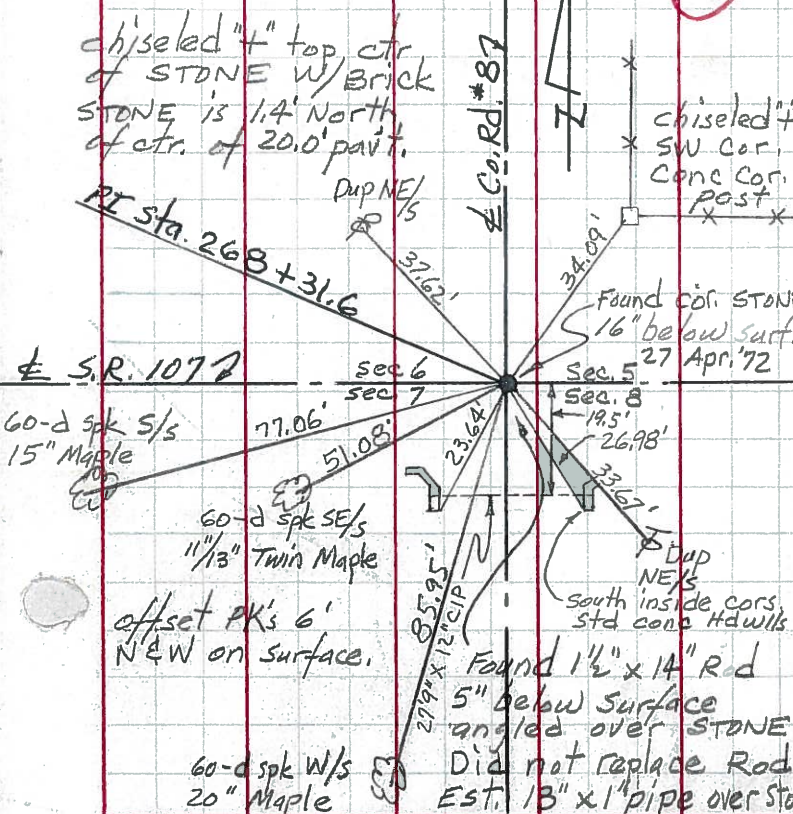 chiseled "+" top ctr
of STONE W/Brick
STONE is 1.4' North
of ctr. of 20.0' pav't.
℄ Co. Rd. #87
N
chiseled "+
SW Cor.
Conc Cor.
Post
Dup NE/s
PI Sta. 268+31.6
37.62'
34.09'
Found cor. STONE
16" below surf.
27 Apr. '72
℄ S.R. 107
Sec 6
Sec 7
Sec. 5
Sec. 8
19.5'
26.98'
33.67'
60-d spk S/s
15" Maple
77.06'
51.08'
23.64'
60-d spk SE/s
11"/13" Twin Maple
Dup
NE/s
South inside cors
Std conc Hdwlls
offset PK's 6'
N & W on surface.
85.95'
27'9" x 12" CIP
Found 1½" x 14" Rod
5" below surface
angled over STONE
Did not replace Rod
Est. 13" x 1" pipe over Sto
60-d spk W/s
20" Maple